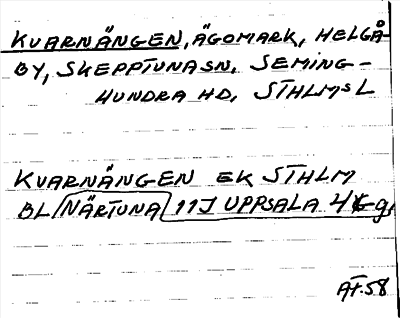 KVARNÄNGEN, ÄGOMARK, HELGÅ-
BY, SKEPPTUNA SN, SEMING-
HUNDRA HD, STHLMS L
KVARNÄNGEN EK STHLM
BL NÄRTUNA 11J UPPSALA 4 g
ÄT. 58